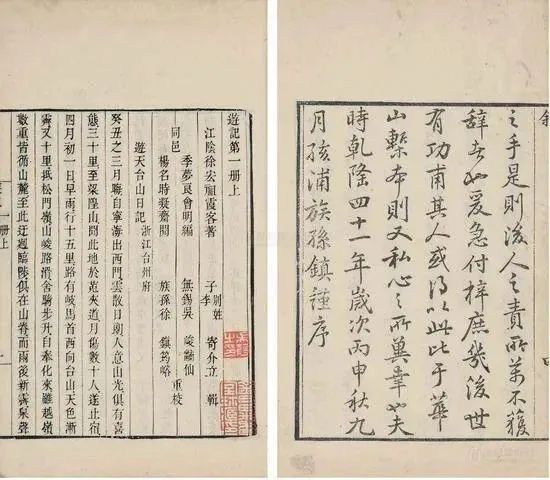 之手是則後人之責所萬不獲
辭者也爰急付梓庶幾後世
有功甫其人或得以此比于華
山槧本則又私心之所冀幸也夫
時乾隆四十一年歲次丙申秋九
月孩浦族孫鎮謹序
遊記第一册上
江陰徐宏祖霞客著 子李別姓寄介立 輯
季夢良會明編 無錫吳 峻黼仙
同邑 重校
楊名時凝齋閱 族孫徐 鎮筠峪
遊天台山日記浙江台州府
癸丑之三月晦自寧海出西門雲散日朗人意山光俱有喜
態三十里至梁隍山聞此地於菟夾道月傷數十人遂止宿
四月初一日早雨行十五里路有岐馬首西向台山天色漸
霽又十里抵松門嶺山峻路滑舍騎步升自奉化來雖越嶺
數重皆循山麓至此迂迴臨陟俱在山脊而雨後新霽泉聲